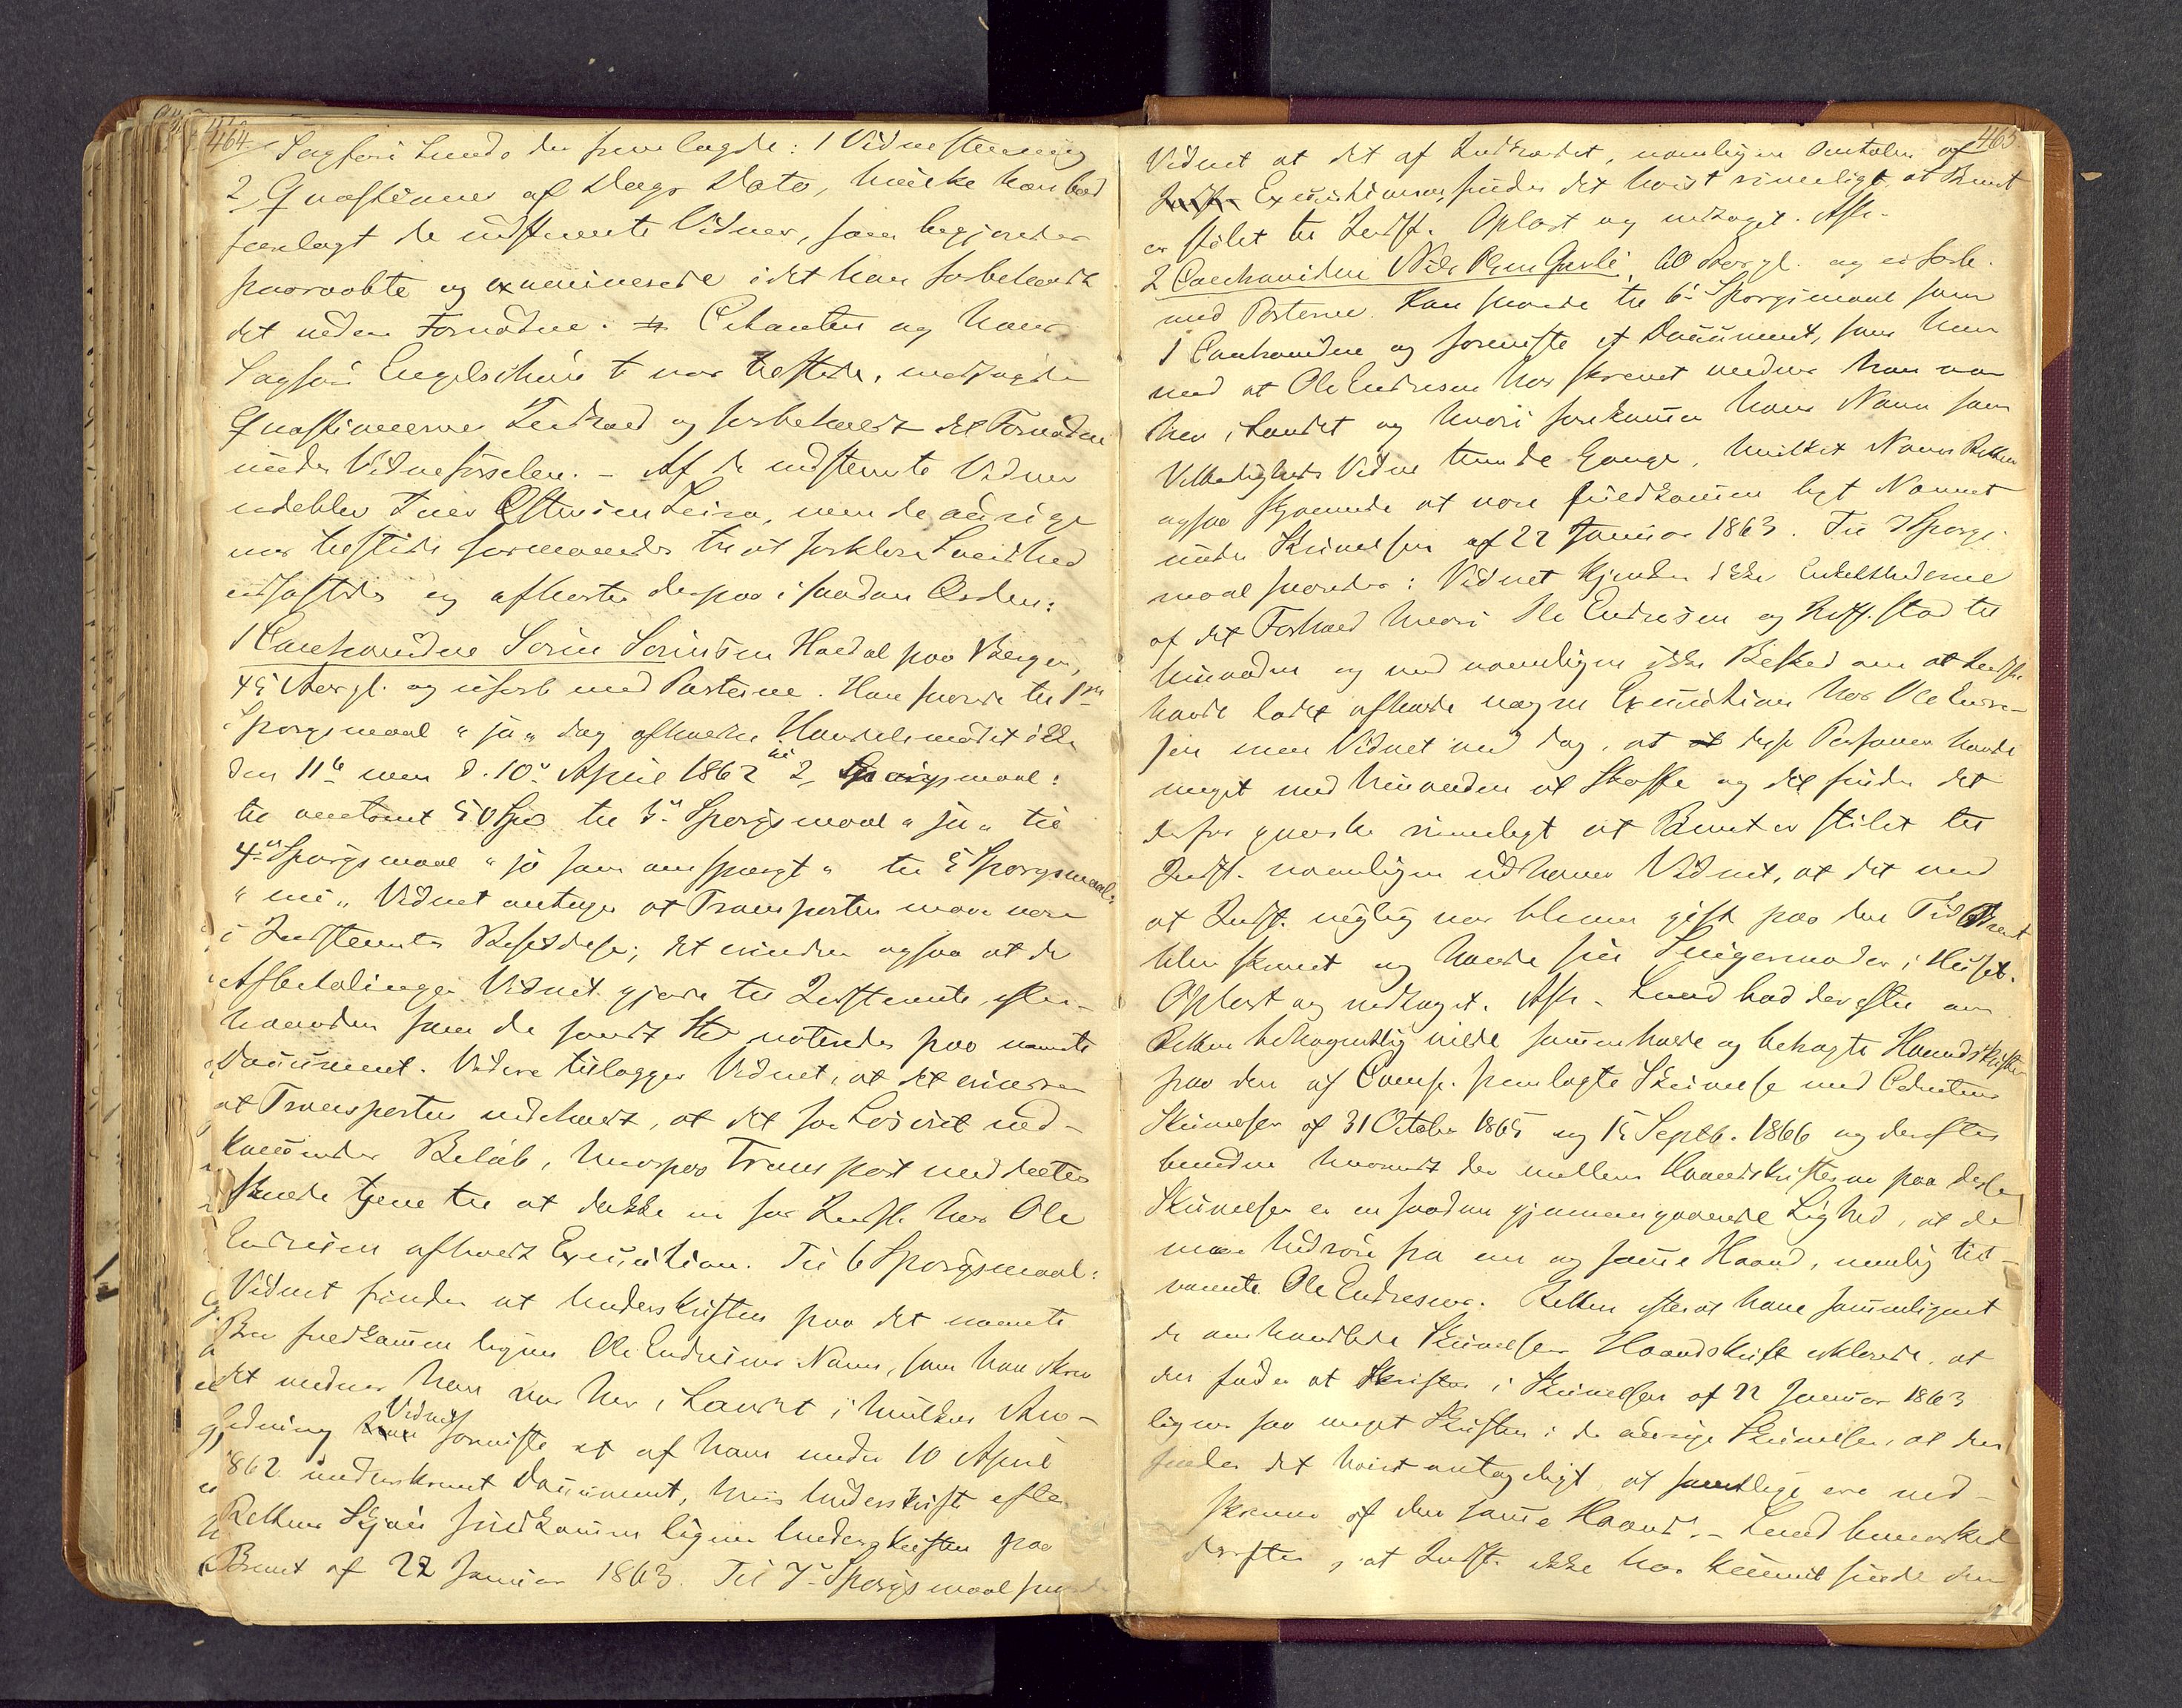 464
Sagfører Lund, der fremlagde: 1 Vidnestevning
2, Qvæstioner af Dags Dato, hvilke han bad
forelagt de indstevnte Vidner, som begjæredes
paaraabte og examinerede idet han forbeholdt
det videre Fornødne. Citanten og hans
Sagfører Engelschiøn t var tilstede, modtagde
Qvæstionerne Indhold og forbeholdt det Fornødne
under Vidneførselen. - Af de indstevnte Vidner
udeblev Iver Leira, men de øvrige
var tilstede formanedes til at forklare Sandhed
edfæstedes og afhørtes derpaa i saadan Orden:
1 Contravidne Søren Sørensen Hædal paa Bergen,
45 Aar gl. og uforb med Parterne. Han svarede til 1ste
Spørgsmaal "ja" dog afholdtes Handelsmødet ikke
den 11te men d. 10de April 1862 til 2, Spørgsmaal:
til omtrent 50 Spd til 3de Spørgsmaal "ja" til
4de Spørgsmaal "ja som omspurgt" til 5 Spørgsmaal:
"nei" Vidnet antager at Transporten maa være
i Indstevntes Besiddelse; det erindrer ogsaa at de
Afbetalinger Vidnet gjorde til Indstevnte efter-
haanden som de fandt Sted noteredes paa nævnte
Document. Videre tillægger Vidnet, at det erindrer
at Transporten indeholdt, at det for Løsøret ned-
kommende Beløb, hvorpaa Transport meddeeltes
skulde tjene til at dække en for Indst. hos Ole
Endresen afholdt Execution. Til 6 Spørgsmaal:
Vidnet finder at Underskriften paa det nævnte
Brev fuldkommen ligner Ole Endresens Navn, som han skrev
det medens han var her i Landet i hvilken An-
ledning Vidnet foreviste et af ham under 10 April
1862 underskrevet Document, hvis Underskrift efter
Rettens Skjøn fuldkommen ligner Underskriften paa
Brevet af 22 Januar 1863. Til 7de Spørgsmaal svarede
465
Vidnet at det af Indholdet, navnligen Omtalen af
Executionen, finder det høist rimeligt at Brevet
er stilet til Indst. Oplæst og vedtaget. Aftr.
2 Contravidne Nils Gusli, 60 Aar gl. og ei forb.
med Parterne. Han svarede til 6te Spørgsmaal som
1 Contravidne og foreviste et Document, som han
ved at Ole Endresen har skrevet medens han var
her i Landet og hvori forekommer hans Navn som
Vitterligheds Vidne trende Gange, hvilket Navn Retten
ogsaa skjønnede at være fuldkommen ligt Navnet
under Skrivelsen af 22 Januar 1863. Til 7 Spørgs-
maal svaredes: Vidnet kjender ikke Enkelthederne
af det Forhold hvori Ole Endresen og Indst. stod til
hinanden og ved navnligen ikke Besked om at Indst.
havde ladet afholde nogen Execution hos Ole Endre-
sen men Vidnet ved dog, at disse Personer havde
meget med hinanden at skaffe og det finder det
derfor ganske rimeligt at Brevet er stilet til
Indst. navnligen udhæver Vidnet, at det ved
at Indst. nylig var bleven gift paa den Tid Brevet
blev skrevet og havde sin Svigermoder i Huset.
Oplæst og vedtaget. Aftr. - Lund bad derefter om
Retten behageligen vilde sammenholde og betragte Haandskriften
paa den af Comp. fremlagte Skrivelse med Citantens
Skrivelser af 31 October 1865 og 15 Septb. 1866 og derefter
bevidne hvorvidt der mellem Haandskrifterne paa disse
Skrivelser er en saadan gjennemgaaende Lighed, at de
maa hidrøre fra en og samme Haand, nemlig bit-
nævnte Ole Endresens. Retten efter at have sammenlignet
de omhandlede Skrivelsers Haandskrift erklærede, at
den finder at Skriften i Skrivelsen af 22 Januar 1863
ligner saa meget Skriften i de øvrige Skrivelser, at den
finder det høist antageligt, at samtlige ere ned-
skrevne af den samme Haand. - Lund bemærkede
derefter, at Indst. ikke har kunnet finde den